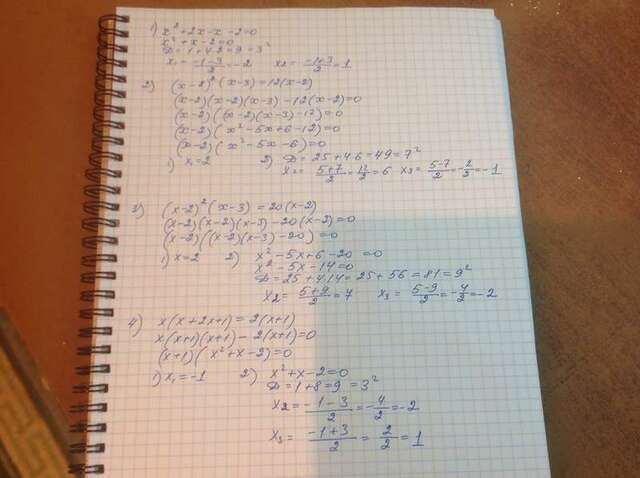 1) x² + 2x - x - 2 = 0
x² + x - 2 = 0
D = 1 + 4·2 = 9 = 3²
x₁ = (-1-3)/2 = -2    x₂ = (-1+3)/2 = 1
2) (x-2)² (x-3) = 12(x-2)
(x-2)(x-2)(x-3) - 12(x-2) = 0
(x-2)((x-2)(x-3) - 12) = 0
(x-2)(x² - 5x + 6 - 12) = 0
(x-2)(x² - 5x - 6) = 0
1) x₁ = 2    2) D = 25 + 4·6 = 49 = 7²
x₂ = (5+7)/2 = 12/2 = 6    x₃ = (5-7)/2 = -2/2 = -1
3) (x-2)² (x-3) = 20(x-2)
(x-2)(x-2)(x-3) - 20(x-2) = 0
(x-2)((x-2)(x-3) - 20) = 0
1) x = 2    2) x² - 5x + 6 - 20 = 0
x² - 5x - 14 = 0
D = 25 + 4·14 = 25 + 56 = 81 = 9²
x₂ = (5+9)/2 = 7    x₃ = (5-9)/2 = -4/2 = -2
4) x(x + 2x + 1) = 2(x+1)
x(x+1)(x+1) - 2(x+1) = 0
(x+1)(x² + x - 2) = 0
1) x₁ = -1    2) x² + x - 2 = 0
D = 1 + 8 = 9 = 3²
x₂ = (-1-3)/2 = -4/2 = -2
x₃ = (-1+3)/2 = 2/2 = 1